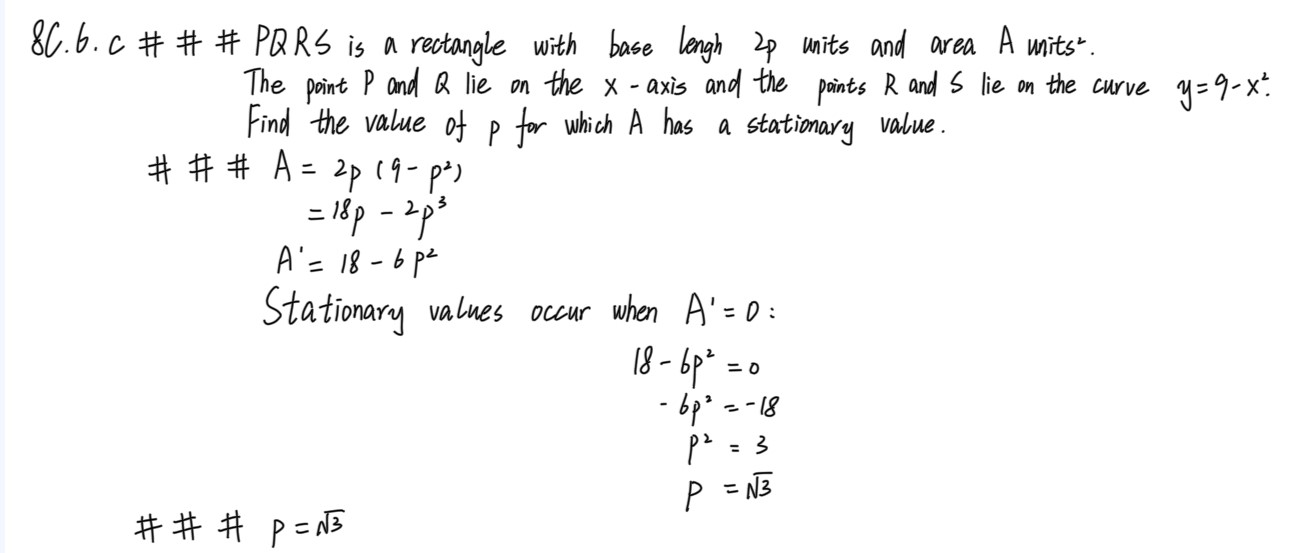 8C.6.c # # # PQRS is a rectangle with base lengh 2p units and area A units².
The point P and Q lie on the x-axis and the points R and S lie on the curve y=9-x².
Find the value of p for which A has a stationary value.
# # # A = 2p (9-p²)
= 18p - 2p³
A' = 18 - 6p²
Stationary values occur when A' = 0 :
18 - 6p² = 0
- 6p² = -18
p² = 3
p = √3
# # # p = √3